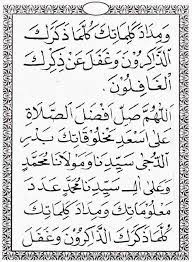 وَمِدَادَ كَلِمَاتِكَ كُلَّمَا ذَكَرَكَ
الذَّاكِرُونَ وَغَفَلَ عَنْ ذِكْرِكَ
الْغَافِلُونَ
اَللّٰهُمَّ صَلِّ اَفْضَلَ الصَّلَاةِ
عَلَى اَسْعَدِ مَخْلُوقَاتِكَ بَدْرِ
الدُّجَى سَيِّدِنَا وَمَوْلَانَا مُحَمَّدٍ
وَعَلَى اٰلِ سَيِّدِنَا مُحَمَّدٍ عَدَدَ
مَعْلُومَاتِكَ وَمِدَادَ كَلِمَاتِكَ
كُلَّمَا ذَكَرَكَ الذَّاكِرُونَ وَغَفَلَ